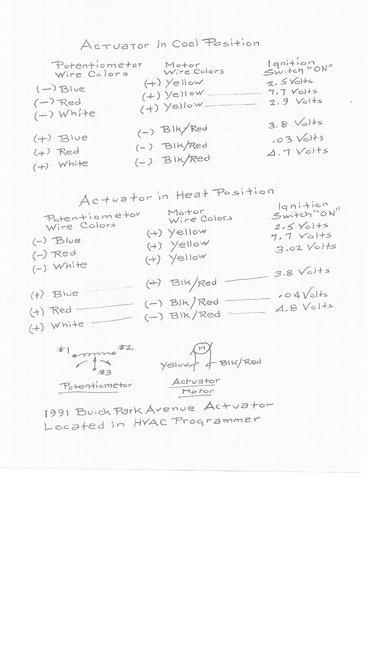 Actuator In Cool Position
Potentiometer Motor Ignition
Wire Colors Wire Colors Switch "ON"
(-) Blue (+) Yellow 2.5 Volts
(-) Red (+) Yellow 7.7 Volts
(-) White (+) Yellow 2.9 Volts
(+) Blue (-) Blk/Red 3.8 Volts
(+) Red (-) Blk/Red .03 Volts
(+) White (-) Blk/Red 4.7 Volts
Actuator in Heat Position
Potentiometer Motor Ignition
Wire Colors Wire Colors Switch "ON"
(-) Blue (+) Yellow 2.5 Volts
(-) Red (+) Yellow 7.7 Volts
(-) White (+) Yellow 3.02 Volts
(+) Blue Blk/Red 3.8 Volts
(+) Red (-) Blk/Red .04 Volts
(+) White (-) Blk/Red 4.8 Volts
#1 #2 M
#3 Yellow Blk/Red
Potentiometer Actuator
Motor
1991 Buick Park Avenue Actuator
Located in HVAC Programmer